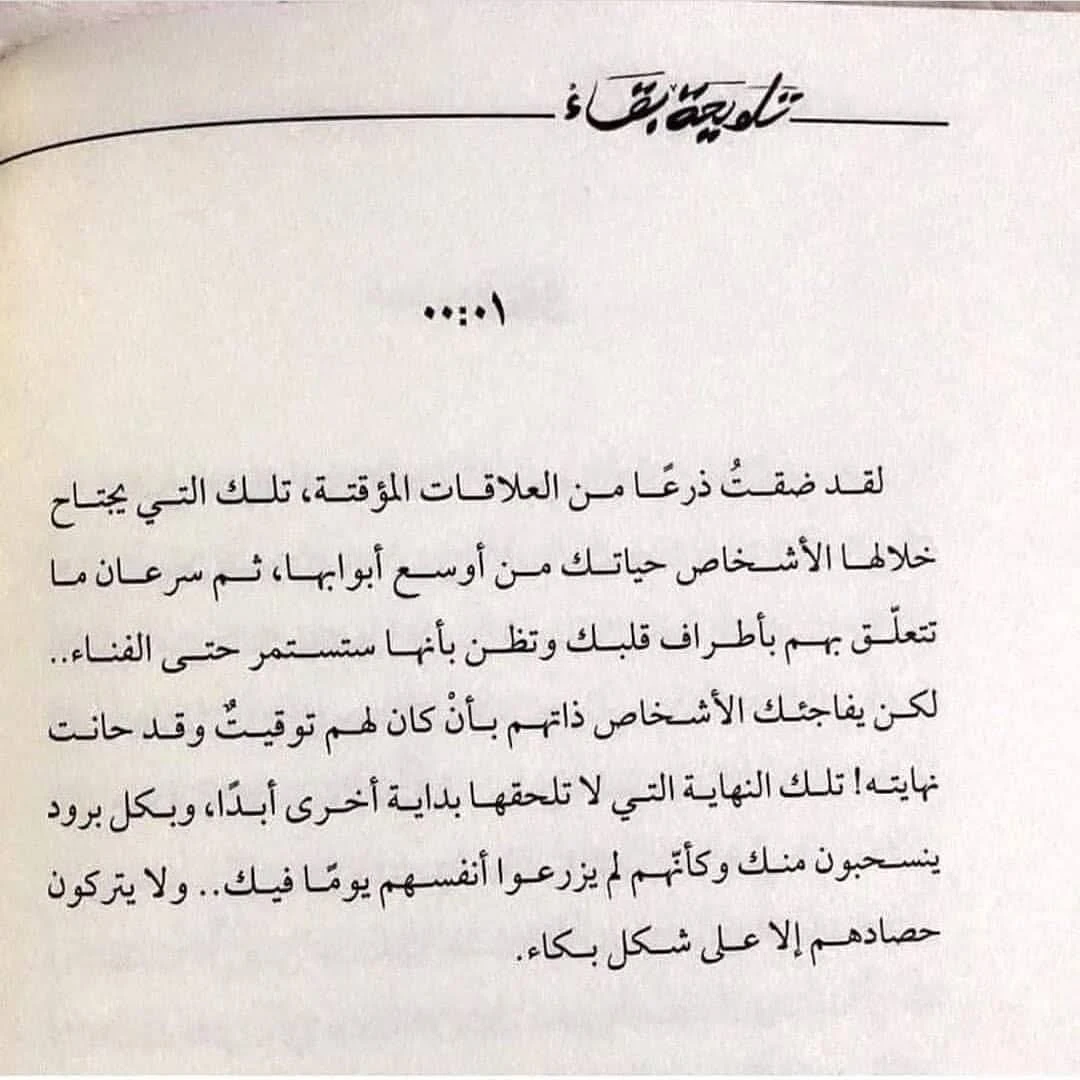 تلويحة بقاء
٠٠:٠١
لقد ضقتُ ذرعًا من العلاقات المؤقتة، تلك التي يجتاح
خلالها الأشخاص حياتك من أوسع أبوابها، ثم سرعان ما
تتعلّق بهم بأطراف قلبك وتظن بأنها ستستمر حتى الفناء..
لكن يفاجئك الأشخاص ذاتهم بأنْ كان لهم توقيتٌ وقد حانت
نهايته! تلك النهاية التي لا تلحقها بداية أخرى أبدًا، وبكل برود
ينسحبون منك وكأنّهم لم يزرعوا أنفسهم يومًا فيك.. ولا يتركون
حصادهم إلا على شكل بكاء.